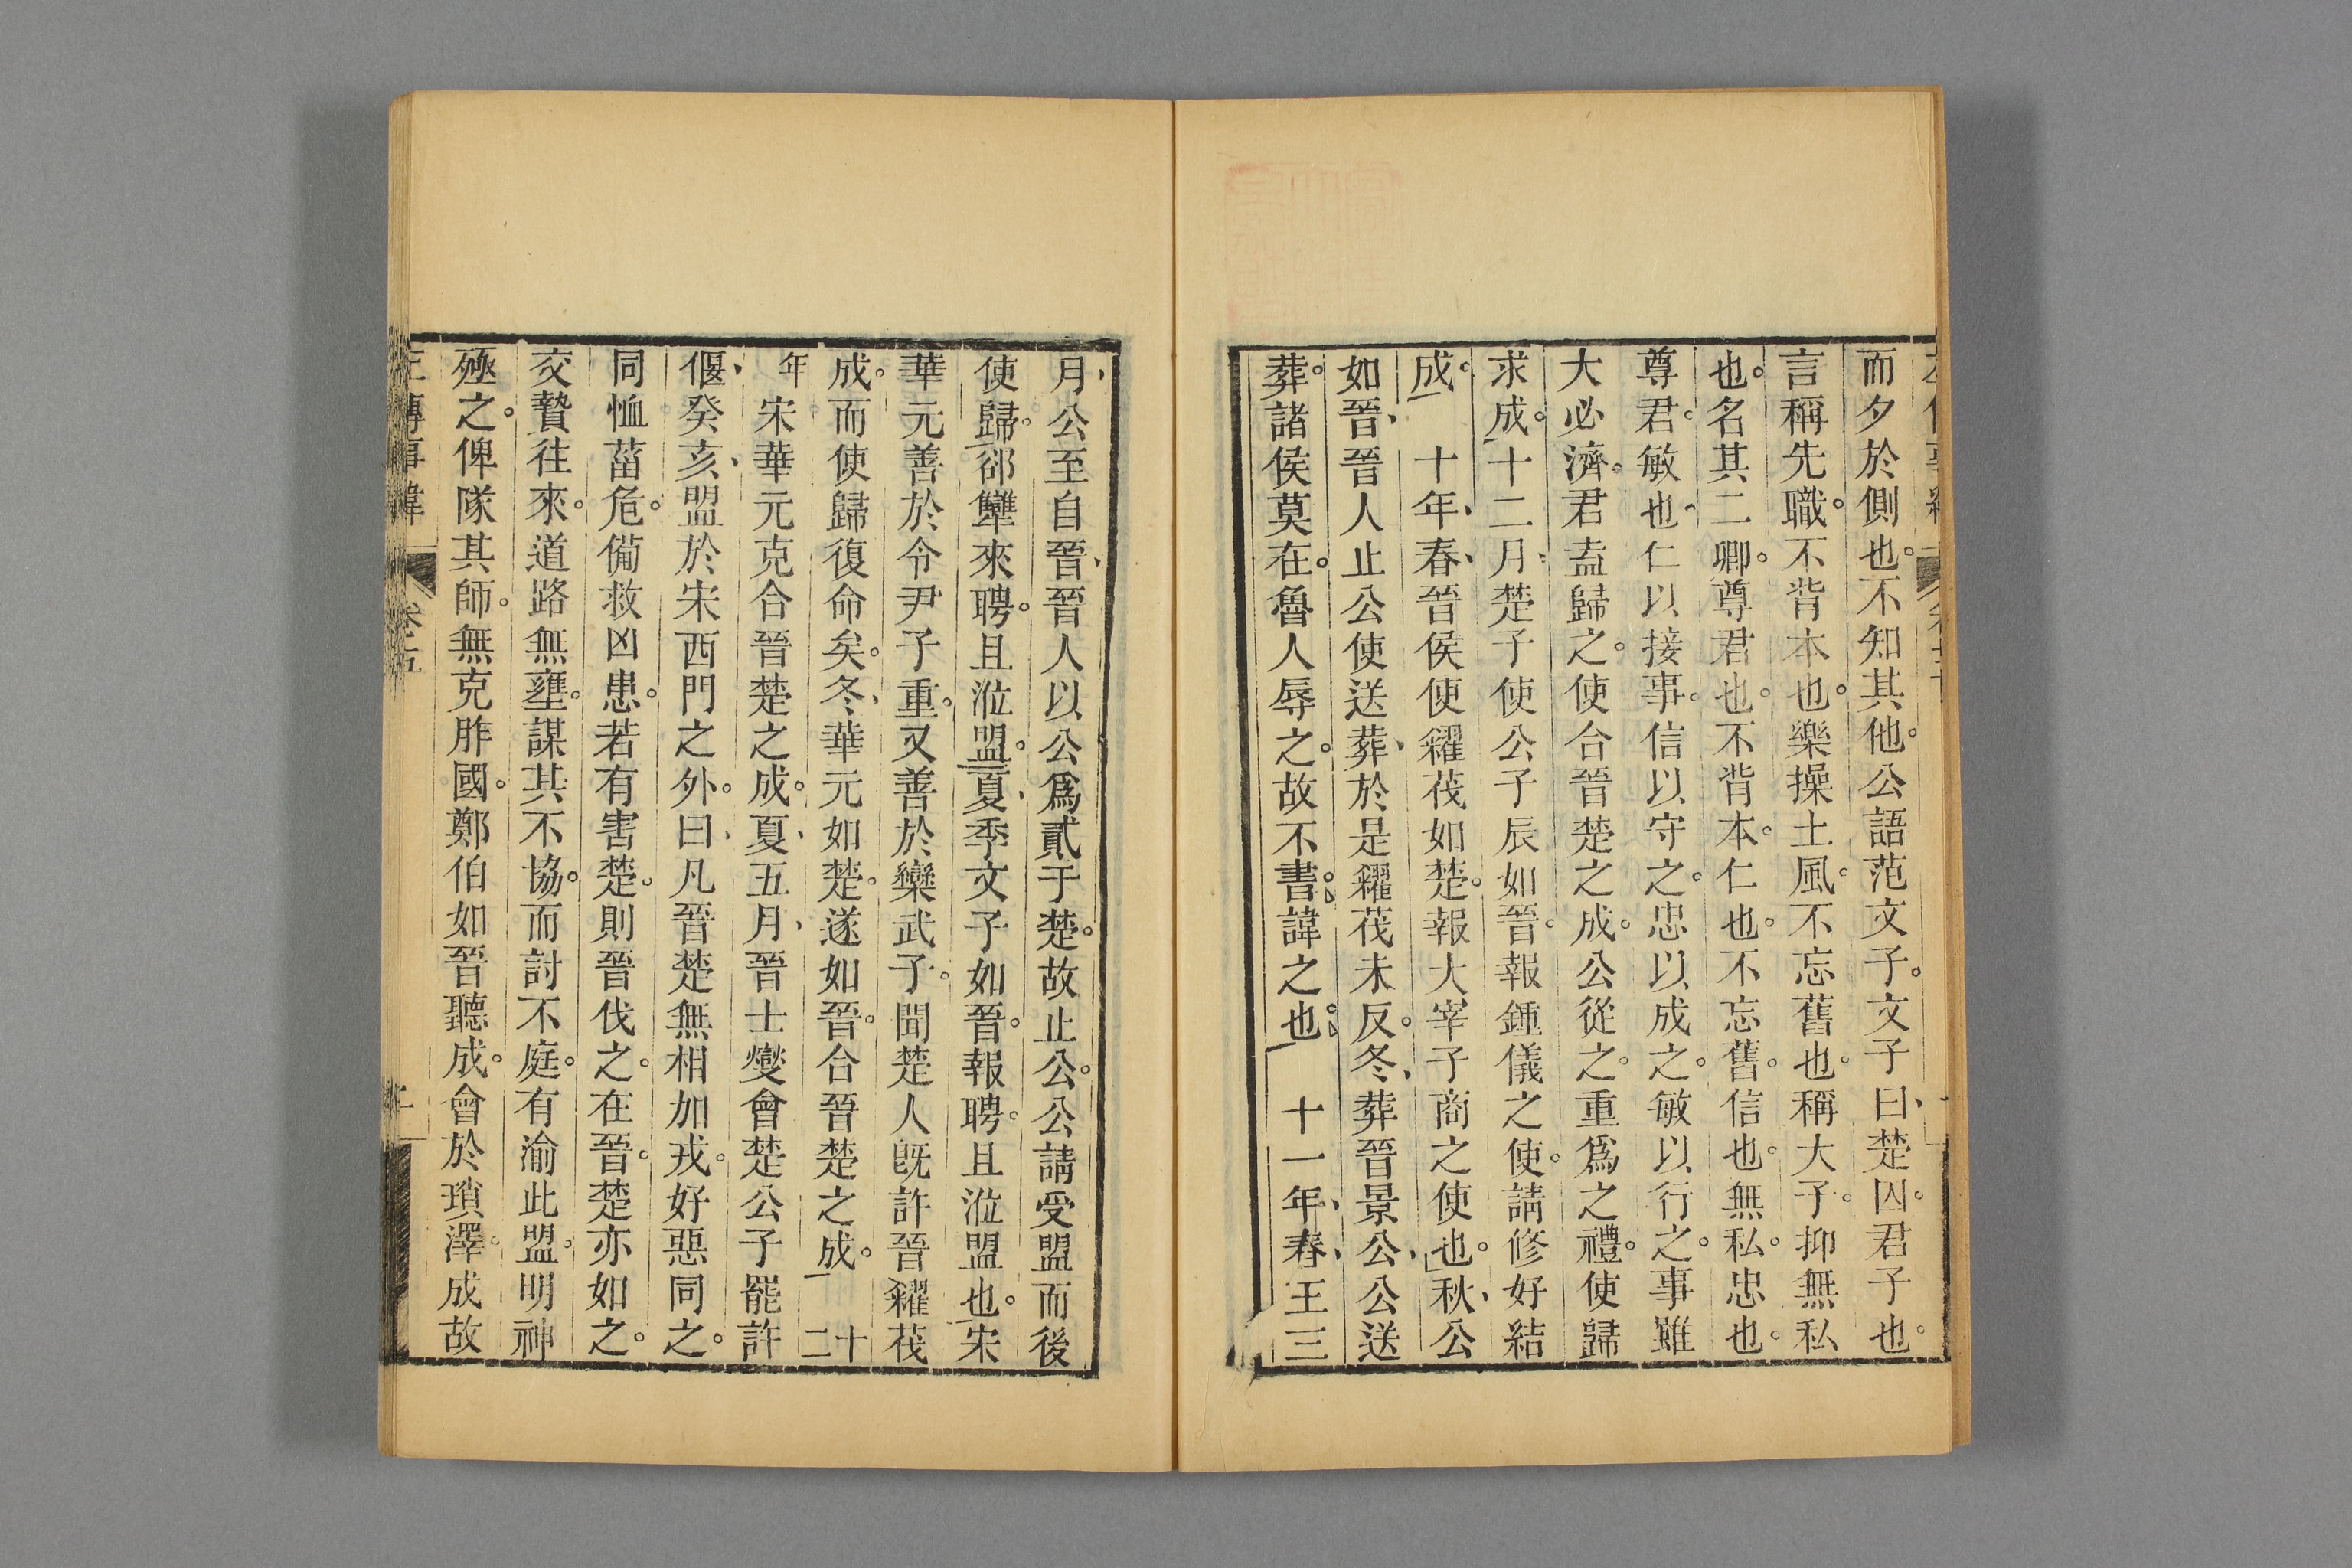 而夕於側也。不知其他。公語范文子。文子曰、楚囚。君子也。
言稱先職。不背本也。樂操土風。不忘舊也。稱大子。抑無私
也。名其二卿。尊君也。不背本。仁也。不忘舊。信也。無私。忠也。
尊君。敏也。仁以接事。信以守之。忠以成之。敏以行之。事雖
大必濟。君盍歸之。使合晉楚之成。公從之。重爲之禮。使歸
求成。十二月、楚子使公子辰如晉。報鍾儀之使。請修好結
成。　十年、春、晉侯使糴茷如楚。報大宰子商之使也。秋、公
如晉、晉人止公使送葬、於是糴茷未反。冬、葬晉景公、公送
葬。諸侯莫在。魯人辱之。故不書。諱之也。　十一年、春、王三
月、公至自晉、晉人以公爲貳于楚。故止公。公請受盟而後
使歸。郤犫來聘。且涖盟。夏、季文子如晉。報聘。且涖盟也。宋
華元善於令尹子重。又善於欒武子。聞楚人既許晉糴茷
成。而使歸復命矣。冬、華元如楚。遂如晉。合晉楚之成。　十二
年　宋華元克合晉楚之成。夏、五月、晉士燮會楚公子罷許
偃、癸亥、盟於宋西門之外。曰、凡晉楚無相加戎。好惡同之。
同恤菑危。備救凶患。若有害楚。則晉伐之。在晉。楚亦如之。
交贄往來。道路無壅。謀其不協。而討不庭。有渝此盟。明神
殛之。俾隊其師。無克胙國。鄭伯如晉聽成。會於瑣澤。成故
左傳事緯　卷之五